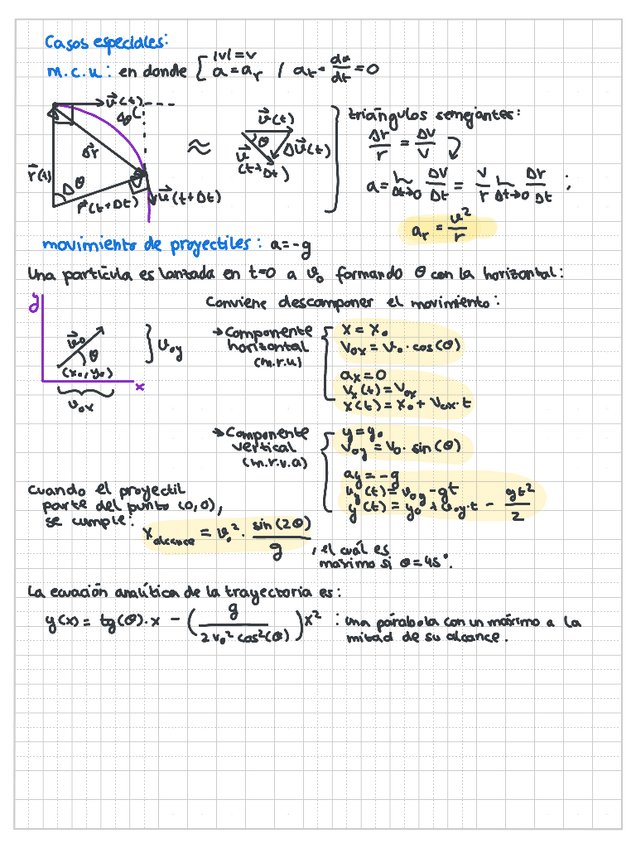 Casos especiales:
m.c.u: en donde { |v| = v
a = a_r / a_t = dv/dt = 0
v⃗(t)
Δr
r⃗(t)
Δθ
r⃗(t+Δt)
v⃗(t+Δt)
≈
v⃗(t)
θ
Δv⃗(t)
v⃗(t+Δt)
triángulos semejantes:
Δr/r = Δv/v
a = lim Δt→0 Δv/Δt = v/r lim Δt→0 Δr/Δt ;
a_r = v²/r
movimiento de proyectiles: a=-g
Una partícula es lanzada en t=0 a v₀ formando θ con la horizontal:
Conviene descomponer el movimiento:
y
v⃗₀
θ
(x₀,y₀)
v₀y
x
v₀x
→ Componente horizontal (m.r.u)
x = x₀
v₀x = v₀·cos(θ)
ax = 0
vx(t) = v₀x
x(t) = x₀ + v₀x·t
→ Componente vertical (m.r.v.a)
y = y₀
v₀y = v₀·sin(θ)
ay = -g
vy(t) = v₀y - gt
y(t) = y₀ + v₀y·t - gt²/2
cuando el proyectil
parte del punto (0,0),
se cumple:
x_alcance = v₀² · sin(2θ)/g , el cuál es
máximo si θ=45°.
La ecuación analítica de la trayectoria es:
y(x) = tg(θ)·x - (g / 2v₀² cos²(θ)) x² : una parábola con un máximo a la
mitad de su alcance.